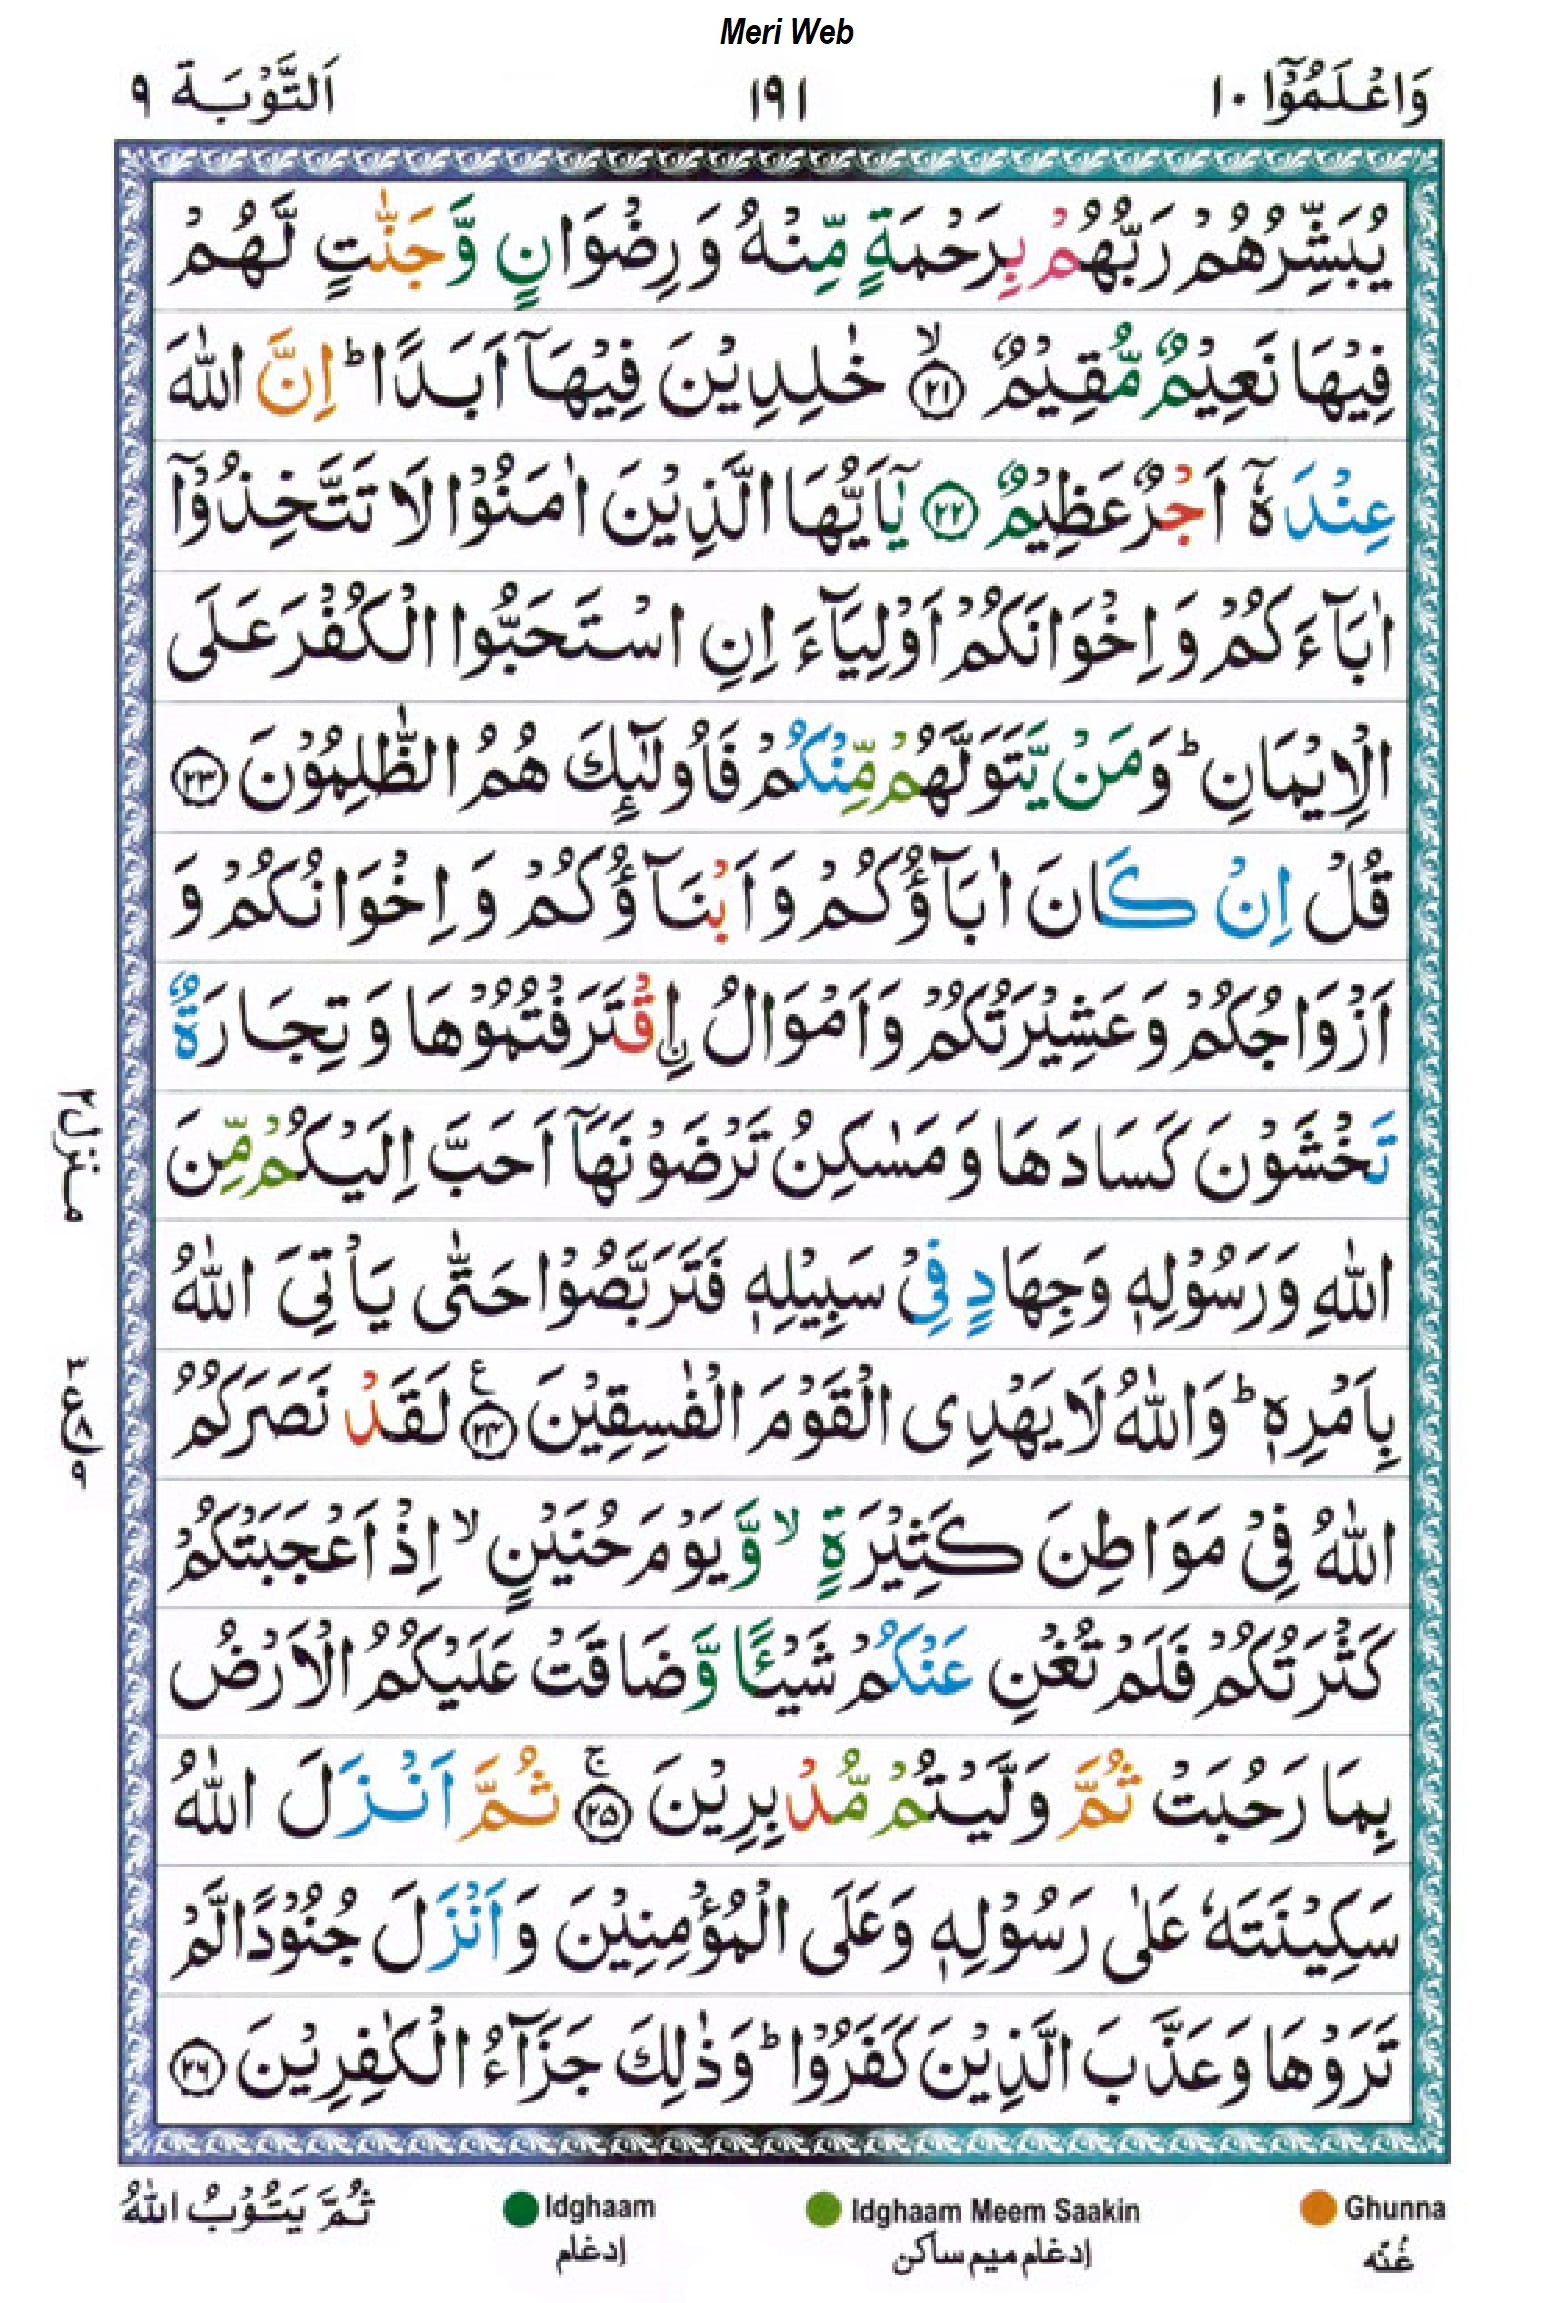 Meri Web
وَاعْلَمُوْٓا ١٠
١٩١
اَلتَّوْبَة ٩
يُبَشِّرُهُمْ رَبُّهُمْ بِرَحْمَةٍ مِّنْهُ وَرِضْوَانٍ وَّجَنّٰتٍ لَّهُمْ
فِيْهَا نَعِيْمٌ مُّقِيْمٌ ۙ‏﴿٢١﴾ خٰلِدِيْنَ فِيْهَآ اَبَدًا ؕ اِنَّ اللّٰهَ
عِنْدَهٗٓ اَجْرٌ عَظِيْمٌ ﴿٢٢﴾ يٰٓاَيُّهَا الَّذِيْنَ اٰمَنُوْا لَا تَتَّخِذُوْٓا
اٰبَآءَكُمْ وَاِخْوَانَكُمْ اَوْلِيَآءَ اِنِ اسْتَحَبُّوا الْكُفْرَ عَلَى
الْاِيْمَانِ ؕ وَمَنْ يَّتَوَلَّهُمْ مِّنْكُمْ فَاُولٰٓئِكَ هُمُ الظّٰلِمُوْنَ ﴿٢٣﴾
قُلْ اِنْ كَانَ اٰبَآؤُكُمْ وَاَبْنَآؤُكُمْ وَاِخْوَانُكُمْ وَ
اَزْوَاجُكُمْ وَعَشِيْرَتُكُمْ وَاَمْوَالُ ۨاقْتَرَفْتُمُوْهَا وَتِجَارَةٌ
تَخْشَوْنَ كَسَادَهَا وَمَسٰكِنُ تَرْضَوْنَهَآ اَحَبَّ اِلَيْكُمْ مِّنَ
اللّٰهِ وَرَسُوْلِهٖ وَجِهَادٍ فِيْ سَبِيْلِهٖ فَتَرَبَّصُوْا حَتّٰى يَاْتِيَ اللّٰهُ
بِاَمْرِهٖ ؕ وَاللّٰهُ لَا يَهْدِى الْقَوْمَ الْفٰسِقِيْنَ ﴿٢٤﴾ ع لَقَدْ نَصَرَكُمُ
اللّٰهُ فِيْ مَوَاطِنَ كَثِيْرَةٍ ۙ وَّيَوْمَ حُنَيْنٍ ۙ اِذْ اَعْجَبَتْكُمْ
كَثْرَتُكُمْ فَلَمْ تُغْنِ عَنْكُمْ شَيْـًٔا وَّضَاقَتْ عَلَيْكُمُ الْاَرْضُ
بِمَا رَحُبَتْ ثُمَّ وَلَّيْتُمْ مُّدْبِرِيْنَ ۚ ﴿٢٥﴾ ثُمَّ اَنْزَلَ اللّٰهُ
سَكِيْنَتَهٗ عَلٰى رَسُوْلِهٖ وَعَلَى الْمُؤْمِنِيْنَ وَاَنْزَلَ جُنُوْدًا لَّمْ
تَرَوْهَا وَعَذَّبَ الَّذِيْنَ كَفَرُوْا ؕ وَذٰلِكَ جَزَآءُ الْكٰفِرِيْنَ ﴿٢٦﴾
منزل ٢
٣ ع ٩
ثُمَّ يَتُوْبُ اللّٰهُ
Idghaam
إدغام
Idghaam Meem Saakin
إدغام ميم ساكن
Ghunna
غُنّه